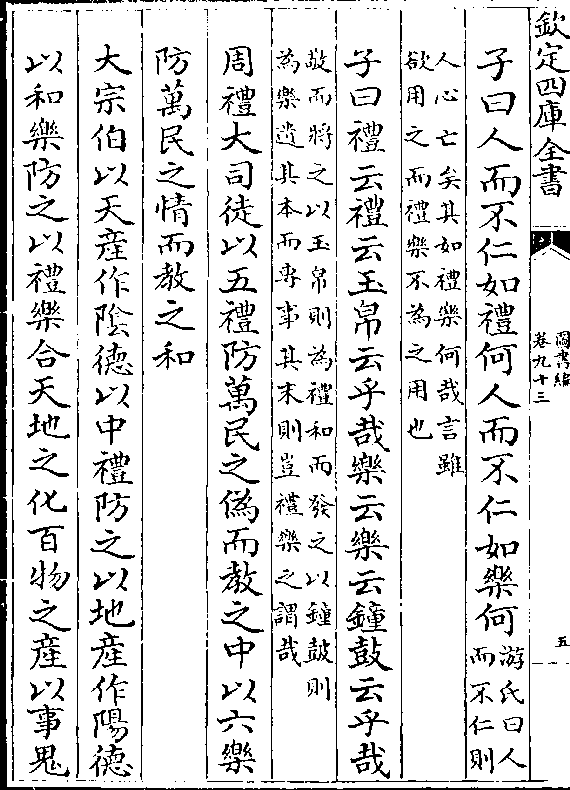 欽定四庫全書
圖書編
卷九十三
五
子曰人而不仁如禮何人而不仁如樂何
游氏曰人
而不仁則
人心亡矣其如禮樂何哉言雖
欲用之而禮樂不為之用也
子曰禮云禮云玉帛云乎哉樂云樂云鐘鼓云乎哉
敬而將之以玉帛則為禮和而發之以鐘鼓則
為樂遺其本而專事其末則豈禮樂之謂哉
周禮大司徒以五禮防萬民之偽而教之中以六樂
防萬民之情而教之和
大宗伯以天產作陰德以中禮防之以地產作陽德
以和樂防之以禮樂合天地之化百物之產以事鬼